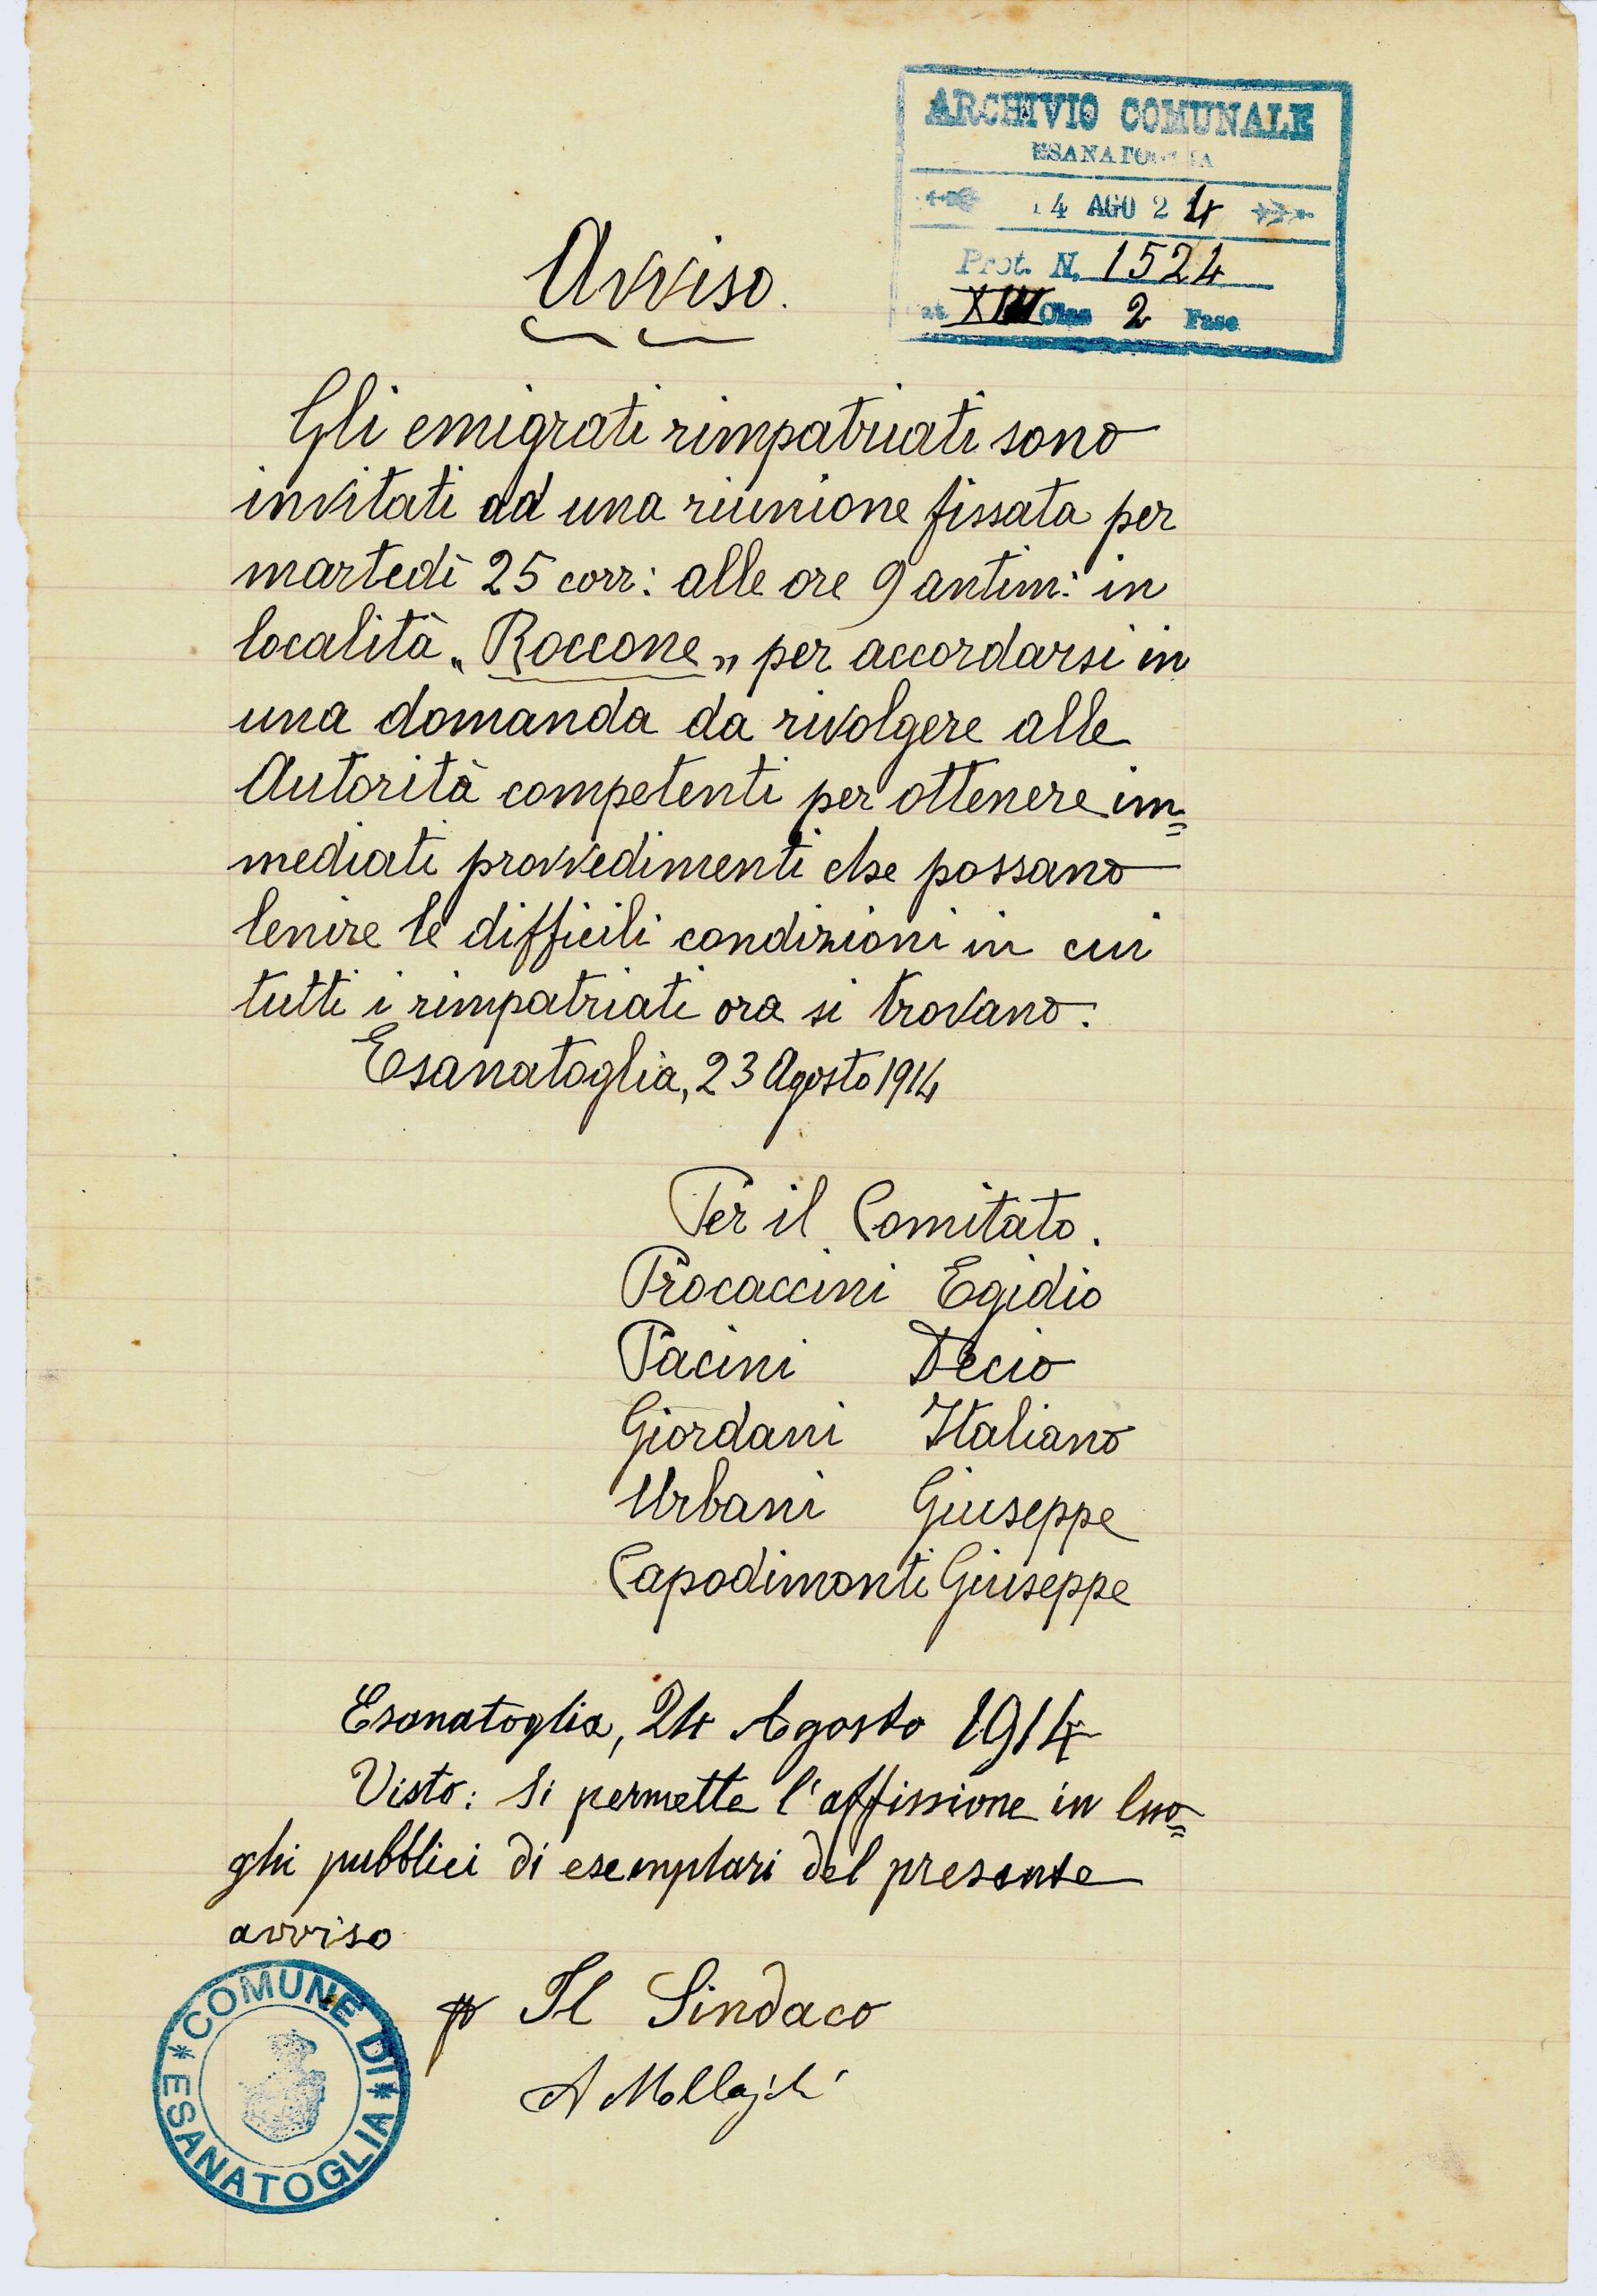 ARCHIVIO COMUNALE
ESANATOGLIA
4 AGO 24
Prot. N. 1524
Clas 2 Fasc
Avviso.
Gli emigrati rimpatriati sono
invitati ad una riunione fissata per
martedì 25 corr: alle ore 9 antim: in
località „Roccone„ per accordarsi in
una domanda da rivolgere alle
Autorità competenti per ottenere im=
mediati provvedimenti che possano
lenire le difficili condizioni in cui
tutti i rimpatriati ora si trovano.
Esanatoglia, 23 Agosto 1914
Per il Comitato.
Procaccini Egidio
Pacini Decio
Giordani Italiano
Urbani Giuseppe
Capodimonti Giuseppe
Esanatoglia, 24 Agosto 1914
Visto: Si permette l'affissione in luo=
ghi pubblici di esemplari del presente
avviso
p Il Sindaco
COMUNE DI * ESANATOGLIA *